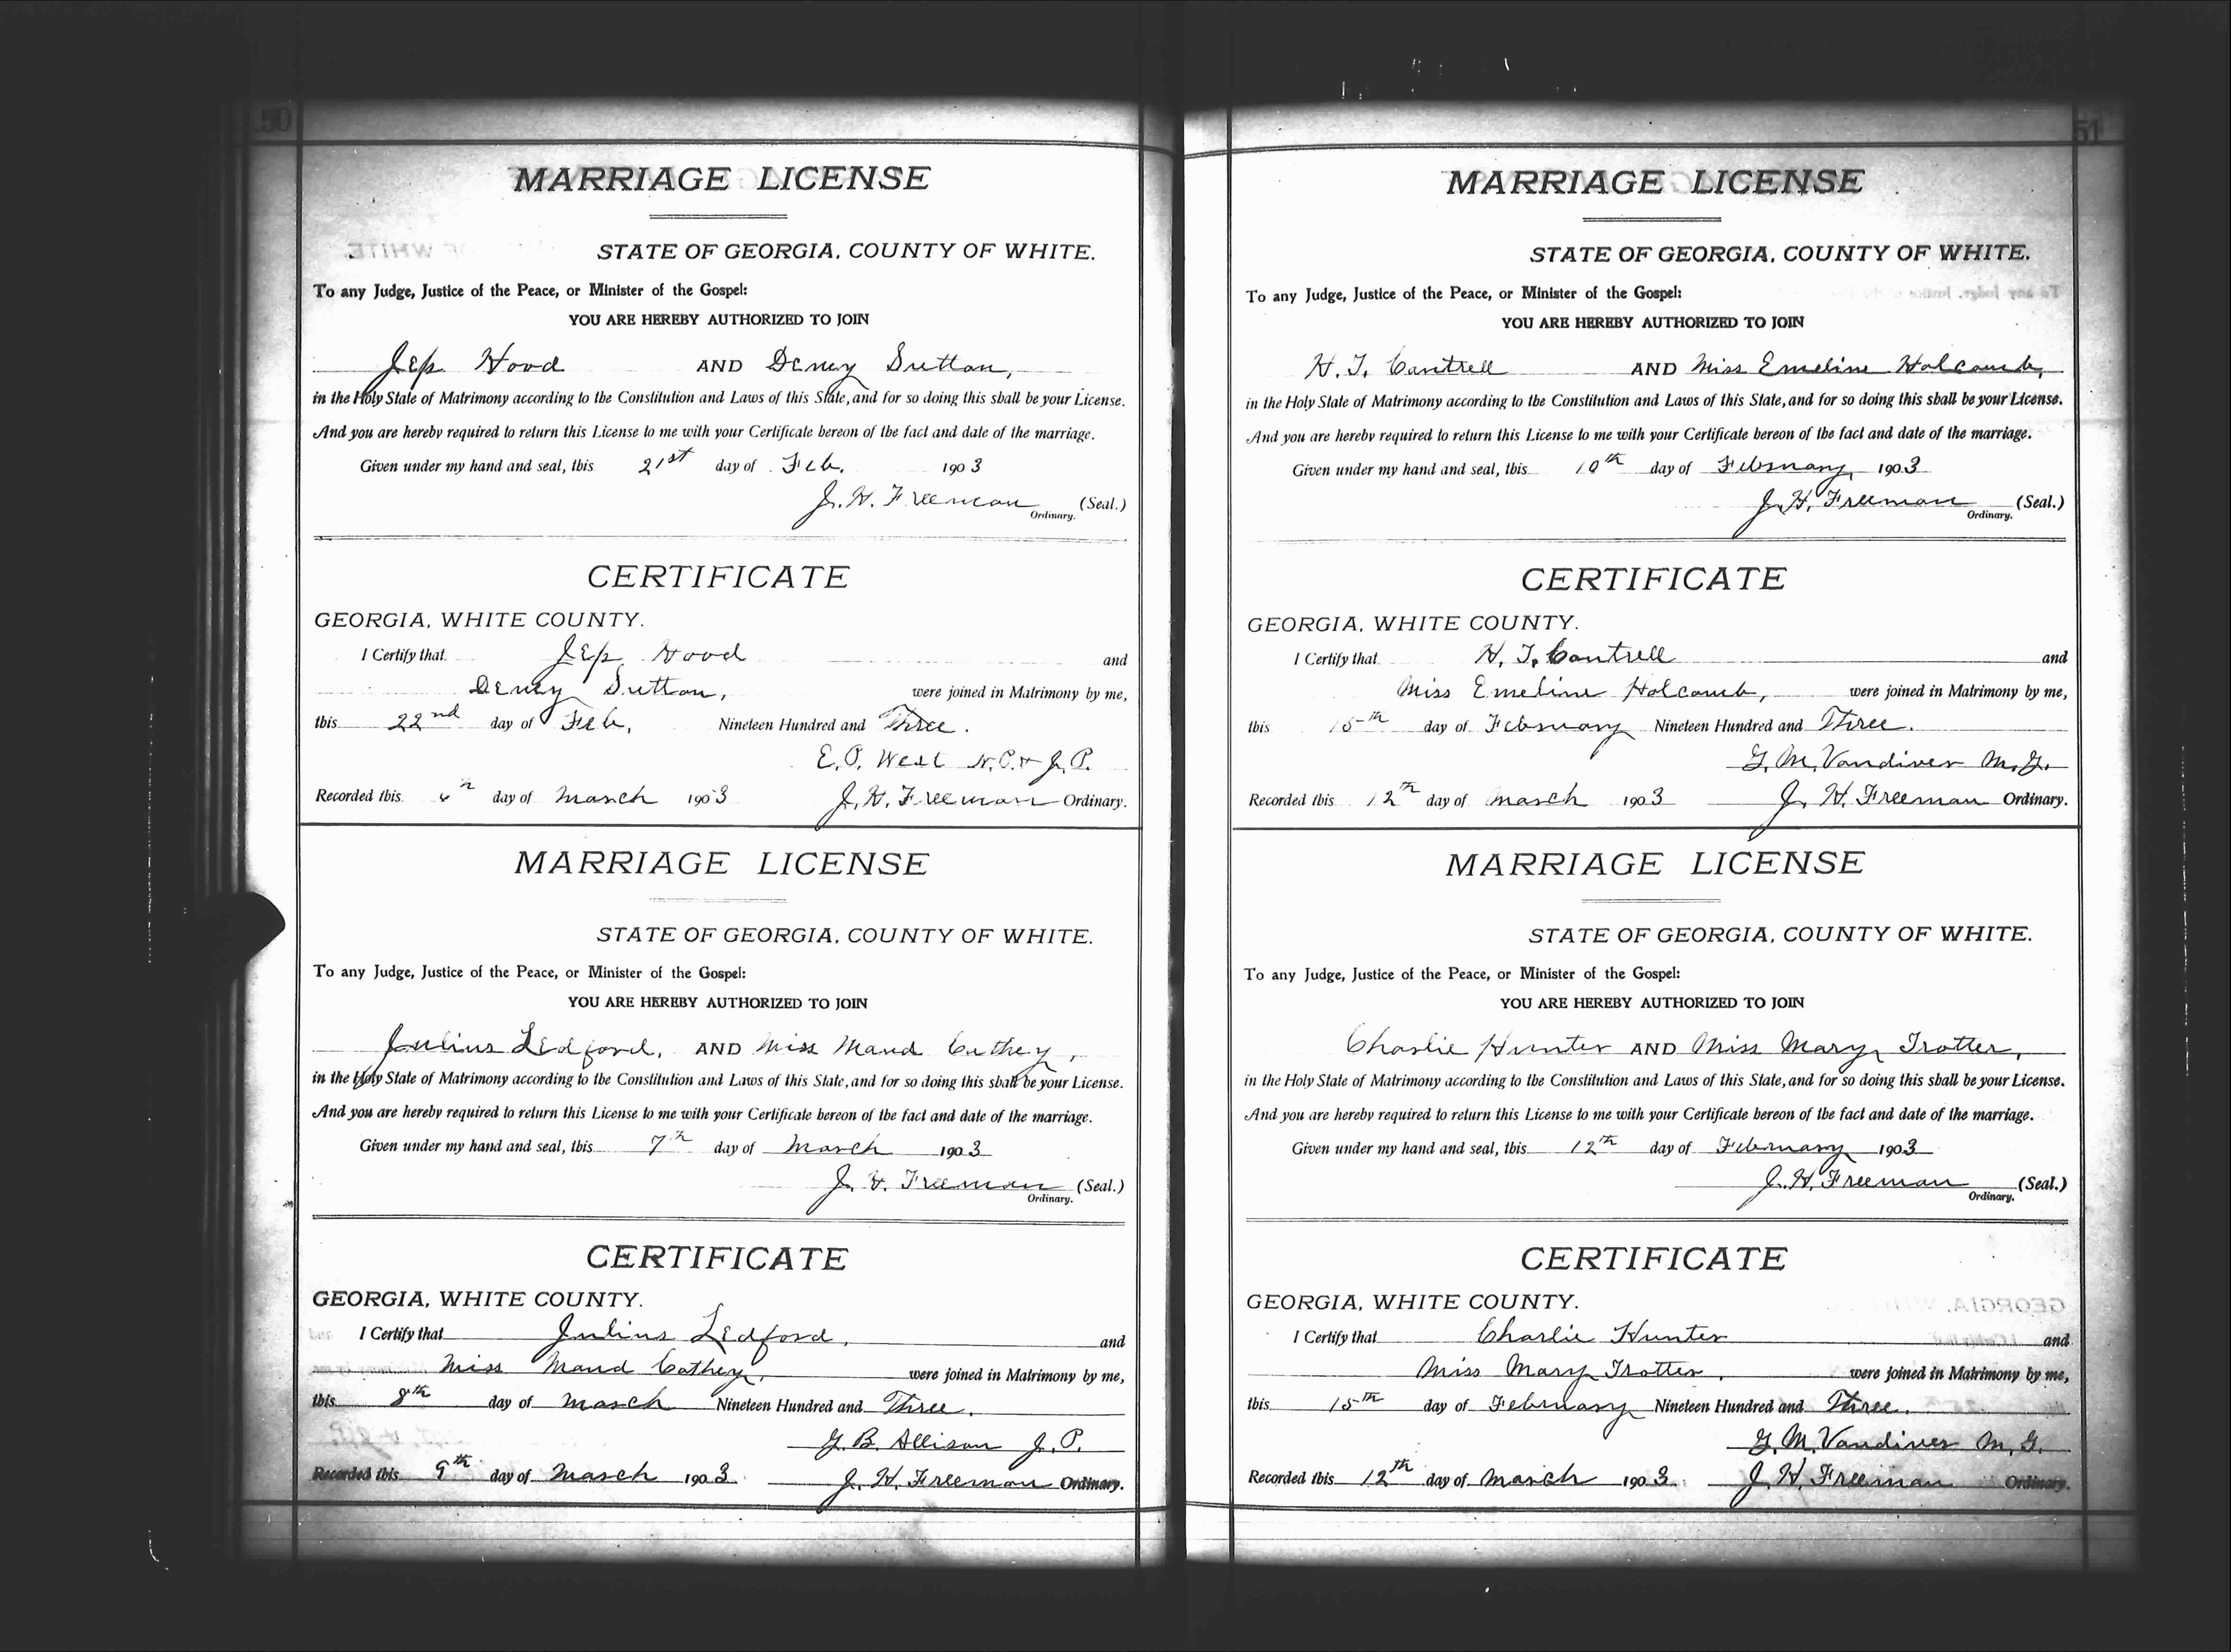 50
MARRIAGE LICENSE
STATE OF GEORGIA, COUNTY OF WHITE.
To any Judge, Justice of the Peace, or Minister of the Gospel:
YOU ARE HEREBY AUTHORIZED TO JOIN
Jep Hood AND Deney Sutton,
in the Holy State of Matrimony according to the Constitution and Laws of this State, and for so doing this shall be your License.
And you are hereby required to return this License to me with your Certificate hereon of the fact and date of the marriage.
Given under my hand and seal, this 21st day of Feb. 1903
J. H. Freeman (Seal.)
Ordinary.
CERTIFICATE
GEORGIA, WHITE COUNTY.
I Certify that Jep Hood and
Deney Sutton, were joined in Matrimony by me,
this 22nd day of Feb, Nineteen Hundred and Three.
E. P. West N.P. & J.P.
Recorded this day of March 1903 J. H. Freeman Ordinary.
MARRIAGE LICENSE
STATE OF GEORGIA, COUNTY OF WHITE.
To any Judge, Justice of the Peace, or Minister of the Gospel:
YOU ARE HEREBY AUTHORIZED TO JOIN
Julius Ledford, AND Miss Maud Cathey,
in the Holy State of Matrimony according to the Constitution and Laws of this State, and for so doing this shall be your License.
And you are hereby required to return this License to me with your Certificate hereon of the fact and date of the marriage.
Given under my hand and seal, this 7th day of March 1903
J. H. Freeman (Seal.)
Ordinary.
CERTIFICATE
GEORGIA, WHITE COUNTY.
I Certify that Julius Ledford, and
Miss Maud Cathey, were joined in Matrimony by me,
this 8th day of March Nineteen Hundred and Three.
G. B. Allison J. P.
Recorded this 9th day of March 1903 J. H. Freeman Ordinary.
51
MARRIAGE LICENSE
STATE OF GEORGIA, COUNTY OF WHITE.
To any Judge, Justice of the Peace, or Minister of the Gospel:
YOU ARE HEREBY AUTHORIZED TO JOIN
H. T. Cantrell AND Miss Emeline Holcomb,
in the Holy State of Matrimony according to the Constitution and Laws of this State, and for so doing this shall be your License.
And you are hereby required to return this License to me with your Certificate hereon of the fact and date of the marriage.
Given under my hand and seal, this 10th day of February, 1903
J. H. Freeman (Seal.)
Ordinary.
CERTIFICATE
GEORGIA, WHITE COUNTY.
I Certify that H. T. Cantrell and
Miss Emeline Holcomb, were joined in Matrimony by me,
this 15th day of February Nineteen Hundred and Three.
G. M. Vandiver M.G.
Recorded this 12th day of March 1903 J. H. Freeman Ordinary.
MARRIAGE LICENSE
STATE OF GEORGIA, COUNTY OF WHITE.
To any Judge, Justice of the Peace, or Minister of the Gospel:
YOU ARE HEREBY AUTHORIZED TO JOIN
Charlie Hunter AND Miss Mary Trotter,
in the Holy State of Matrimony according to the Constitution and Laws of this State, and for so doing this shall be your License.
And you are hereby required to return this License to me with your Certificate hereon of the fact and date of the marriage.
Given under my hand and seal, this 12th day of February 1903
J. H. Freeman (Seal.)
Ordinary.
CERTIFICATE
GEORGIA, WHITE COUNTY.
I Certify that Charlie Hunter and
Miss Mary Trotter, were joined in Matrimony by me,
this 15th day of February Nineteen Hundred and Three.
G. M. Vandiver M. G.
Recorded this 12th day of March 1903 J. H. Freeman Ordinary.